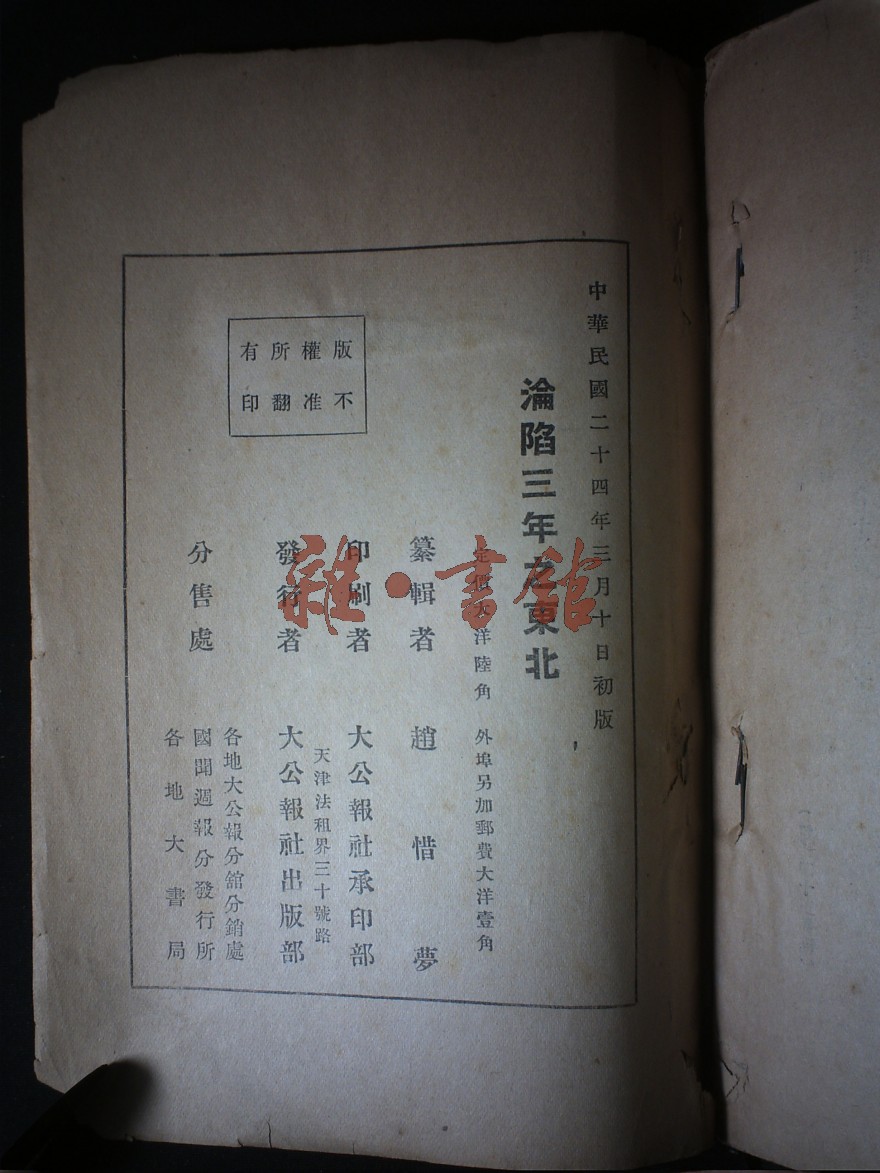 中華民國二十四年三月十日初版
淪陷三年之東北
定價大洋陸角 外埠另加郵費大洋壹角
纂輯者 趙惜夢
印刷者 大公報社承印部
天津法租界三十號路
發行者 大公報社出版部
分售處
各地大公報分館分銷處
國聞週報分發行所
各地大書局
版權所有
不准翻印
雜·書館